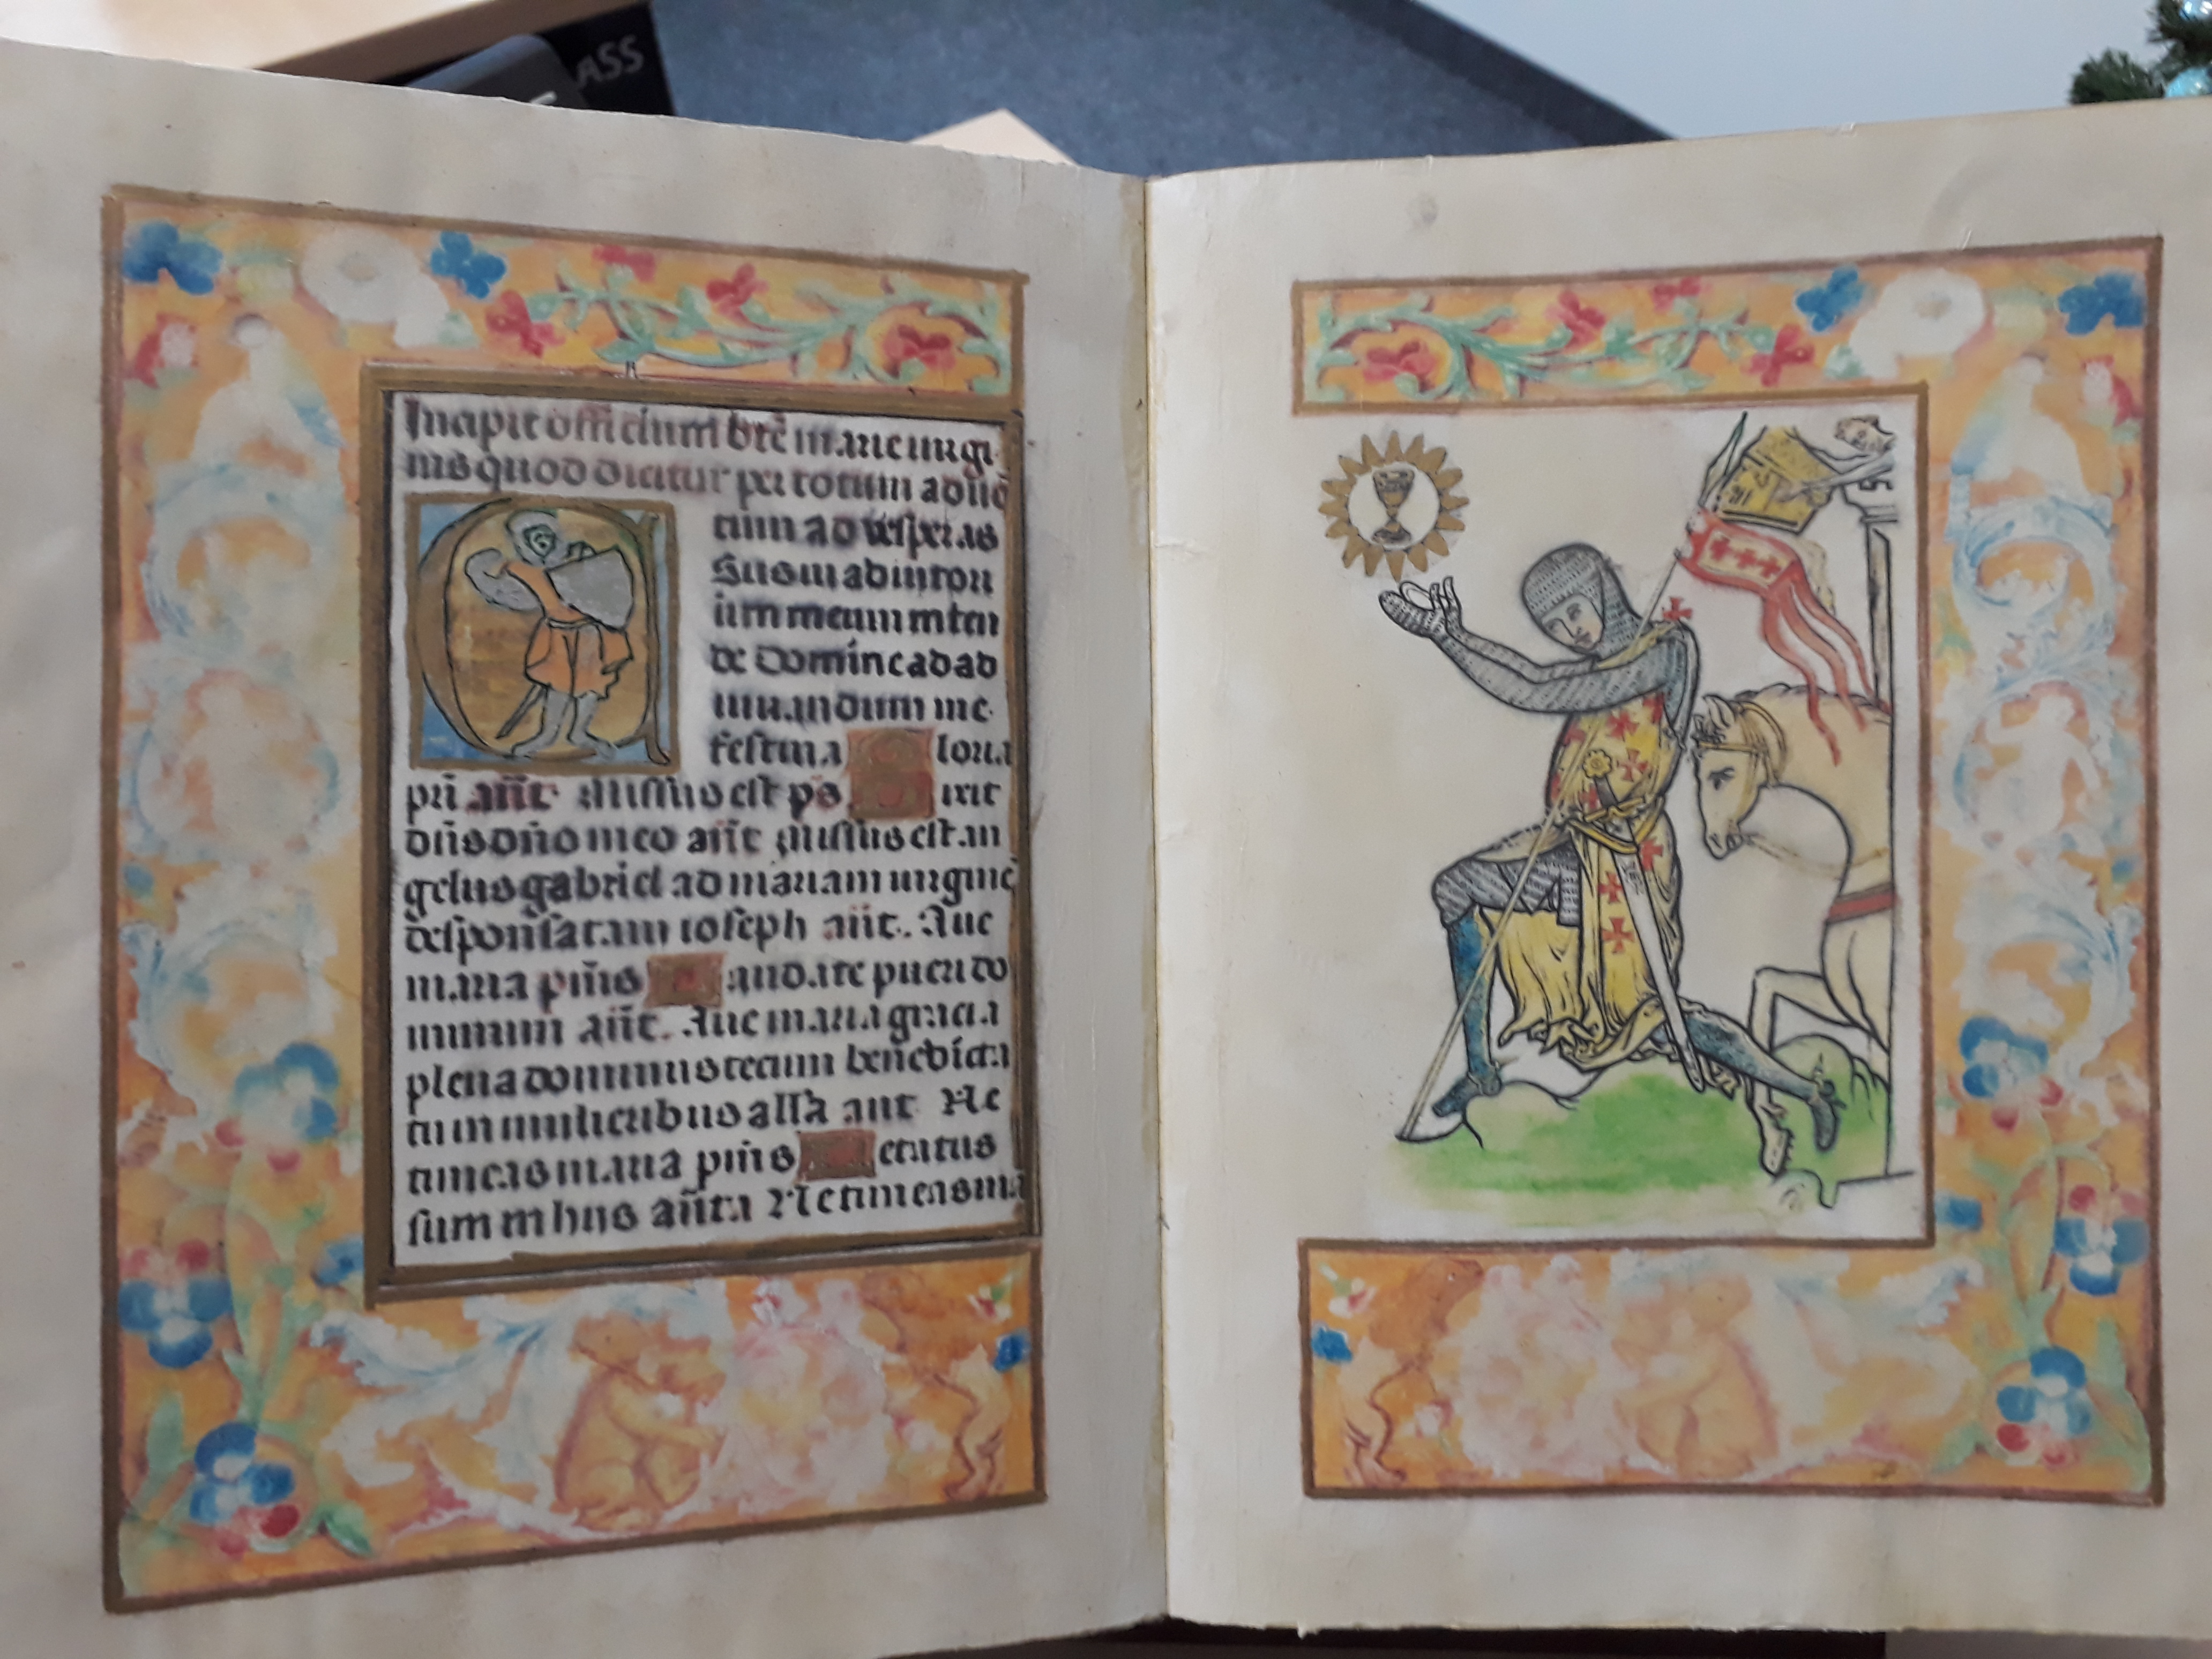 ASS
Incipit officium bte marie virgi
nis quod dicitur per totum aduē
tum ad vesperas
Deus in adiutori
um meum inten
de Domine ad ad
iuuandum me
festina Gloria
pri añt Missus est ps Dixit
dñs dño meo añt Missus est an
gelus gabriel ad mariam uirginē
desponsatam ioseph añt. Aue
maria pm̃s Laudate pueri do
minum añt. Aue maria gracia
plena dominus tecum benedicta
tu in mulieribus alla ant Ne
timeas maria pm̃s Letatus
sum in hijs añt Ne timeas ma